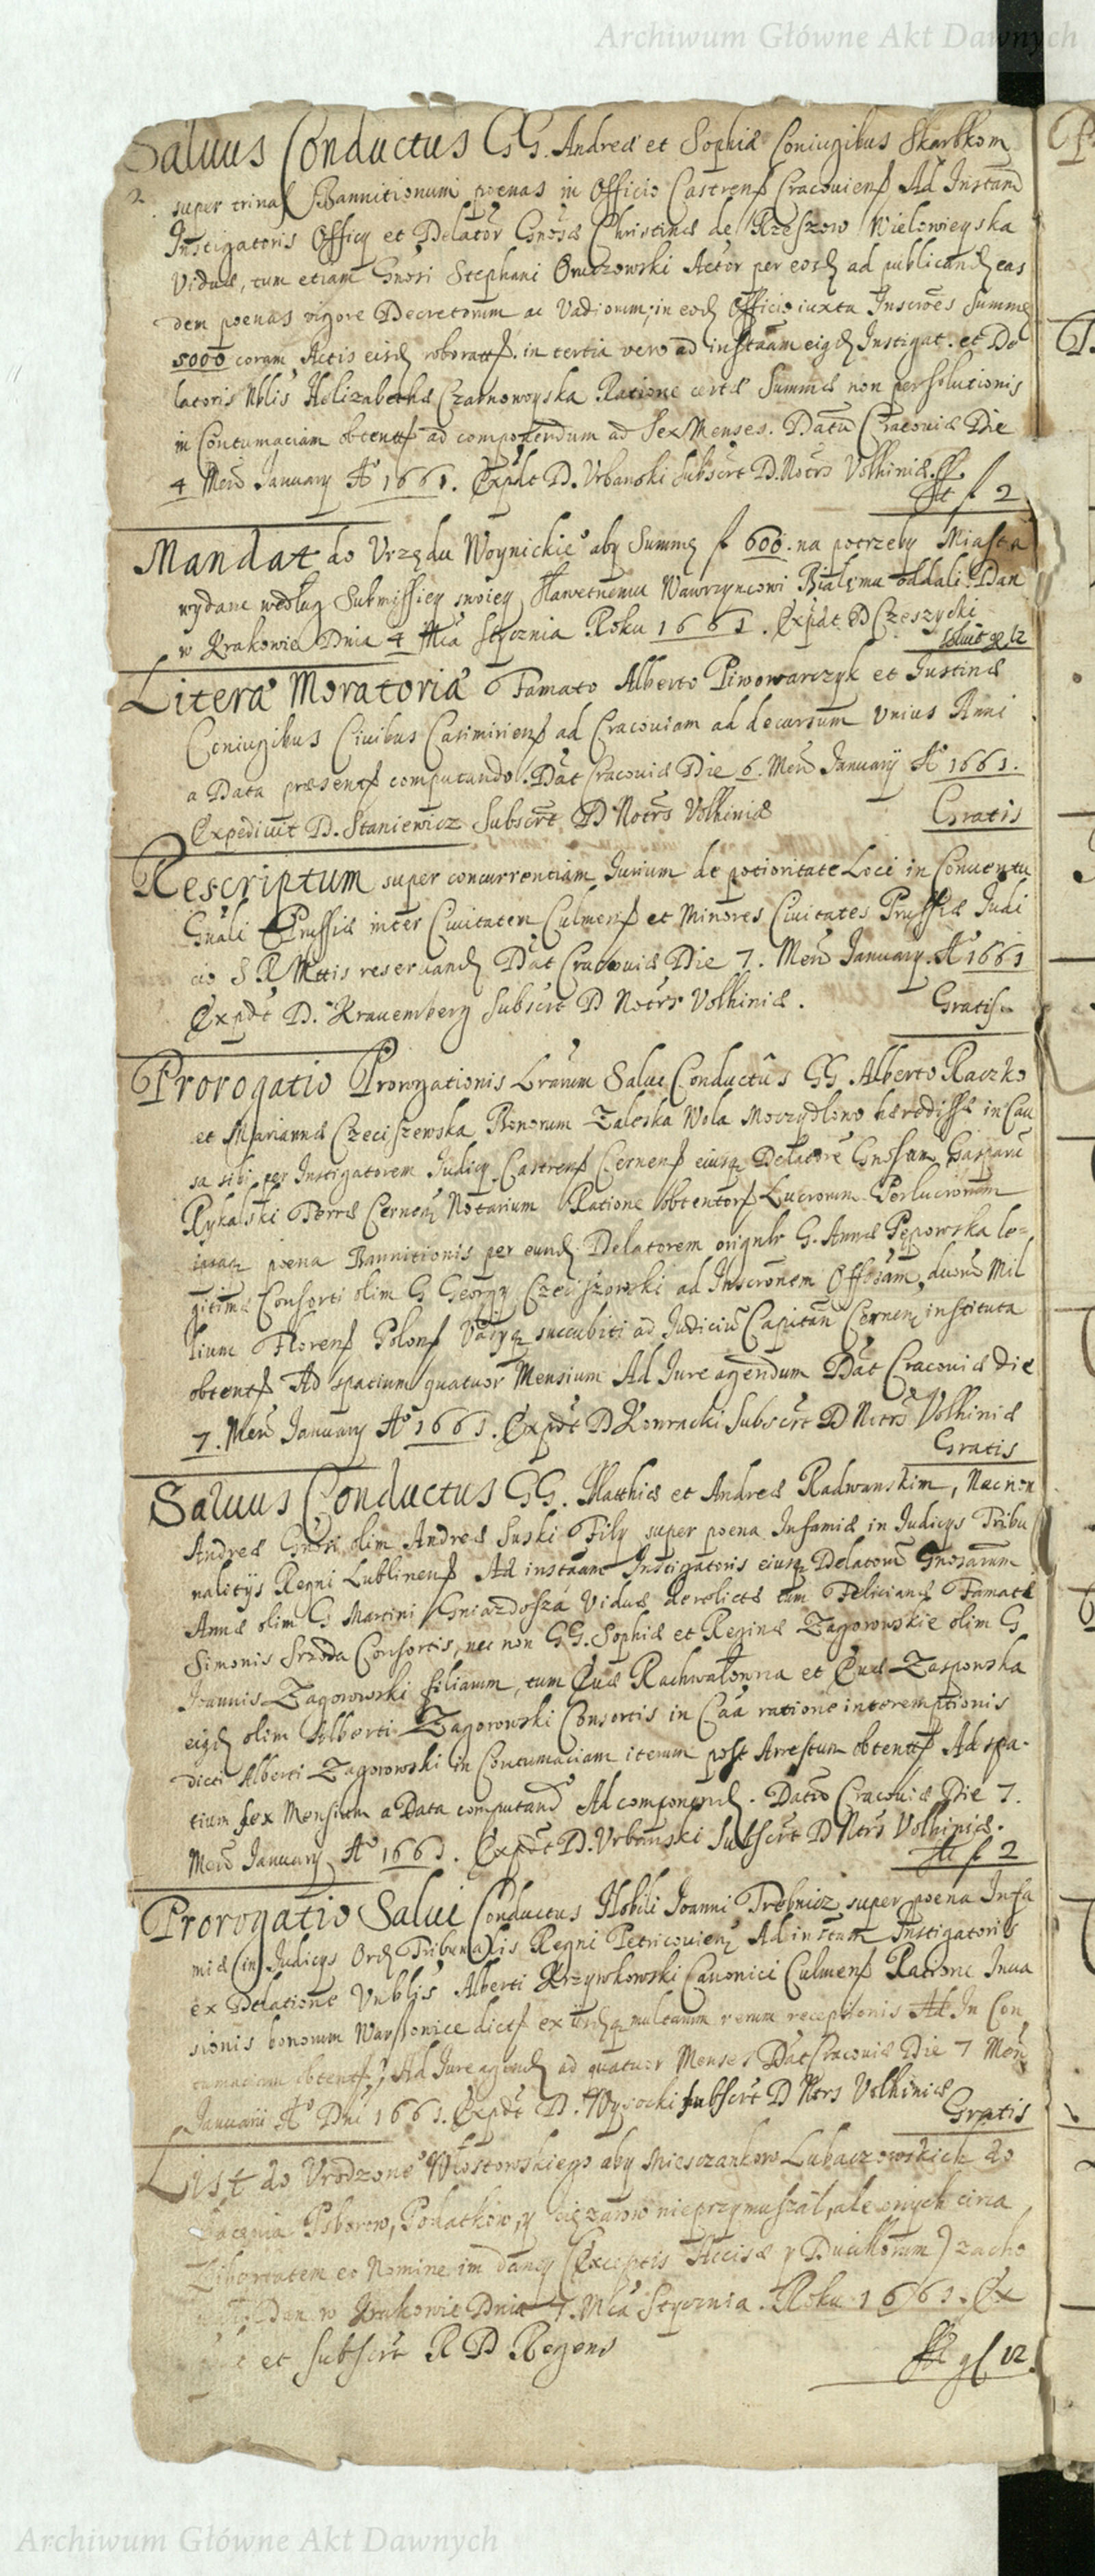 Archiwum Główne Akt Dawnych
Saluus Conductus GG. Andreæ et Sophiæ Coniugibus Skarbkom
super trinas Bannitionum poenas in Officio Castrens Cracouiens Ad Instam
Instigatoris Officy et Delator Gnosæ Christinæ de Rzeszow Wielowieyska
Viduæ, tum etiam Gnosi Stephani Actor per eosd ad publicand eas
dem poenas vigore Decretorum ac Vadiorum, in eod Officio iuxta Inscrões Summæ
5000 coram Actis eisd roboratt. in tertia vero ad instaam eigd Instigat. et De
latoris Nblis Helizabethæ Czarnowoyska Ratione certæ Summæ non persolutionis
in Contumaciam obtent ad componendum ad Sex Menses. Datū Cracouiæ Die
4 Mens January Aº 1661. Expdt D. Urbanski Subscrt D. Notrs Volhiniæ.
f 2
Mandat do Urzędu Woynickiẽ aby Summę f 600. na potrzeby Miasta
wydane według Submissiey swoiey Sławetnemu Wawrzyncowi Białęmu oddali. Dan
w Krakowie Dnia 4 Mca Stycznia Roku 1661. Expdt D Czeszycki
soluit gr 12
Literæ Moratoriæ Famato Alberto Piwowarczyk et Iustinæ
Coniugibus Ciuibus Casimiriens ad Cracouiam ad decursum Vnius Anni
a Data præsent computando. Dat Cracouiæ Die 6. Mens January Aº 1661.
Expediuit D. Staniewicz Subscrt D Notrs Volhiniæ
Gratis
Rescriptum super concurrentiam Iurium de potioritate Loci in Conuentu
Gnali Prussiæ inter Ciuitatem Culmens et Minores Ciuitates Prussiæ Iudi
cio S R Mttis reseruand Dat Cracouiæ Die 7. Mens January. Aº 1661
Expdt D. Krauemberg Subscrt D Notrs Volhiniæ.
Gratis.
Prorogatio Prorogationis Lrarum Salui Conductûs GG Alberto Raczko
et Mariannæ Czeciszewska Bonorum Zaleska Wola Moczydłowo hæredibus in Cau
sa sibi per Instigatorem Iudicy Castrens Cernens eiusq Delatore Gnosum Gasparū
Rykalski Terræ Cernen Notarium Ratione obtentors Lucrorum Perlucrorum
ipsaq poena Bannitionis per eund Delatorem orignlr G. Annæ Pępowska le=
gitimæ Consorti olim G Georgy Czeciszowski ad Inscronem duorū Mil
lium Florens Polons Vadyq succubiti ad Iudiciū Capitan Cernen instituta
obtents Ad spacium quatuor Mensium Ad Iure agendum Dat Cracouiæ die
7. Mens January Aº 1661. Expdt D Konracki Subscrt D Notrs Volhiniæ
Gratis
Saluus Conductus GG. Matthiæ et Andreæ Radwanskim, Nec non
Andreæ Gnosi olim Andreæ Suski Fily super poena Infamiæ in Iudicys Tribu
nalitys Regni Lublinens Ad instaam Instigatoris eiusq Delatorū Gnosarum
Annæ olim G Martini Gniazdosza Viduæ derelictæ tum Felicianæ Famati
Simonis Srzoda Consortis, nec non GG. Sophiæ et Reginæ Zagorowskie olim G
Ioannis Zagorowski filiarum, tum Euæ Rachwałowna et Euæ Zasponska
eigd olim Alberti Zagorowski Consortis in Caa ratione interemptionis
dicti Alberti Zagorowski in Contumaciam iterum post Arrestum obtent Ad spa-
tium sex Mensium a Data computand Ad componend. Datū Cracouiæ Die 7.
Mens January Aº 1661. Expdt D. Urbanski Subscrt D Notrs Volhiniæ.
f 2
Prorogatio Salui Conductus Nobili Ioanni Trebnicz super poena Infa
miæ (in) Iudicys Ord Tribunalis Regni Petricouien Ad instam Instigatoris
ex Delatione Vnblis Alberti Krzywkowski Canonici Culmens Ratione Inua
sionis bonorum dict ex multarum rerum receptionis In Con
tumaciam obtent, Ad Iure agend ad quatuor Menses Dat Cracouiæ Die 7 Mens
Ianuarii Aº Dni 1661. Expdt D. Wysocki subscrt D Notrs Volhiniæ
Gratis
List do Vrodzonẽº Włostowskiego aby Miesczankow Lubaczowskich do
Poborow, Podatkow, y cięzarow nieprzymuszał, ale onych circa
Libertatem eo Nomine im daney (Exceptis Accisæ y Ducillorum) zacho
Dan w Krakowie Dnia 7. Mca Stycznia. Roku 1661. Ex
et subscrt R D Regens
gr 12.
Archiwum Główne Akt Dawnych